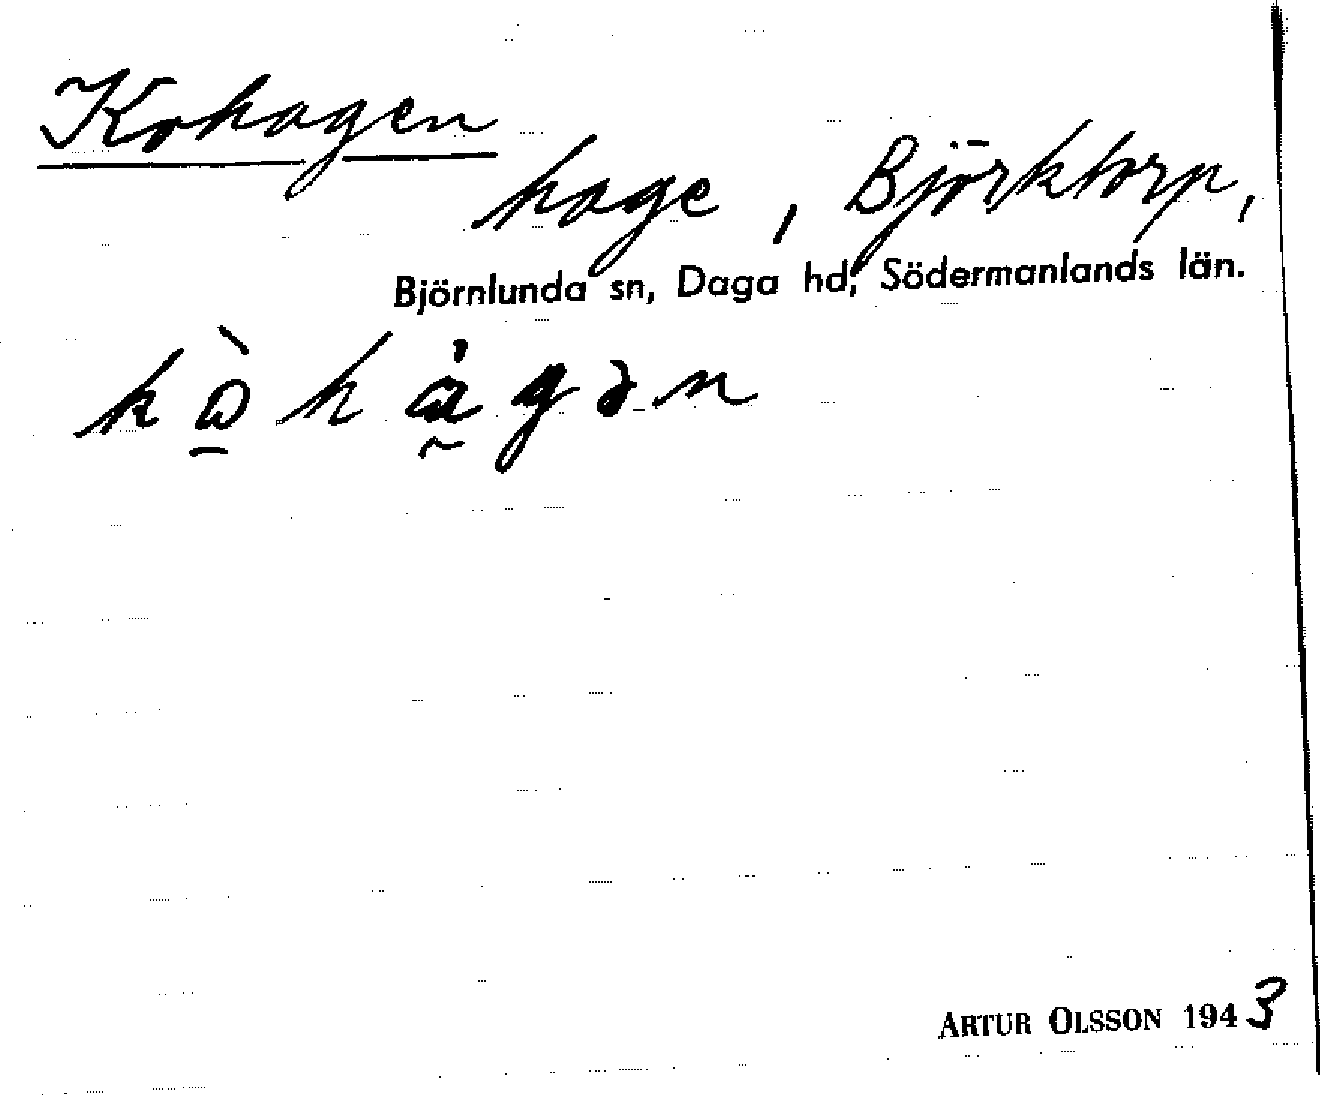 Kohagen
hage, Björktorp,
Björnlunda sn, Daga hd, Södermanlands län.
kɷ̠̀hɑ̰̀gən
ARTUR OLSSON 1943